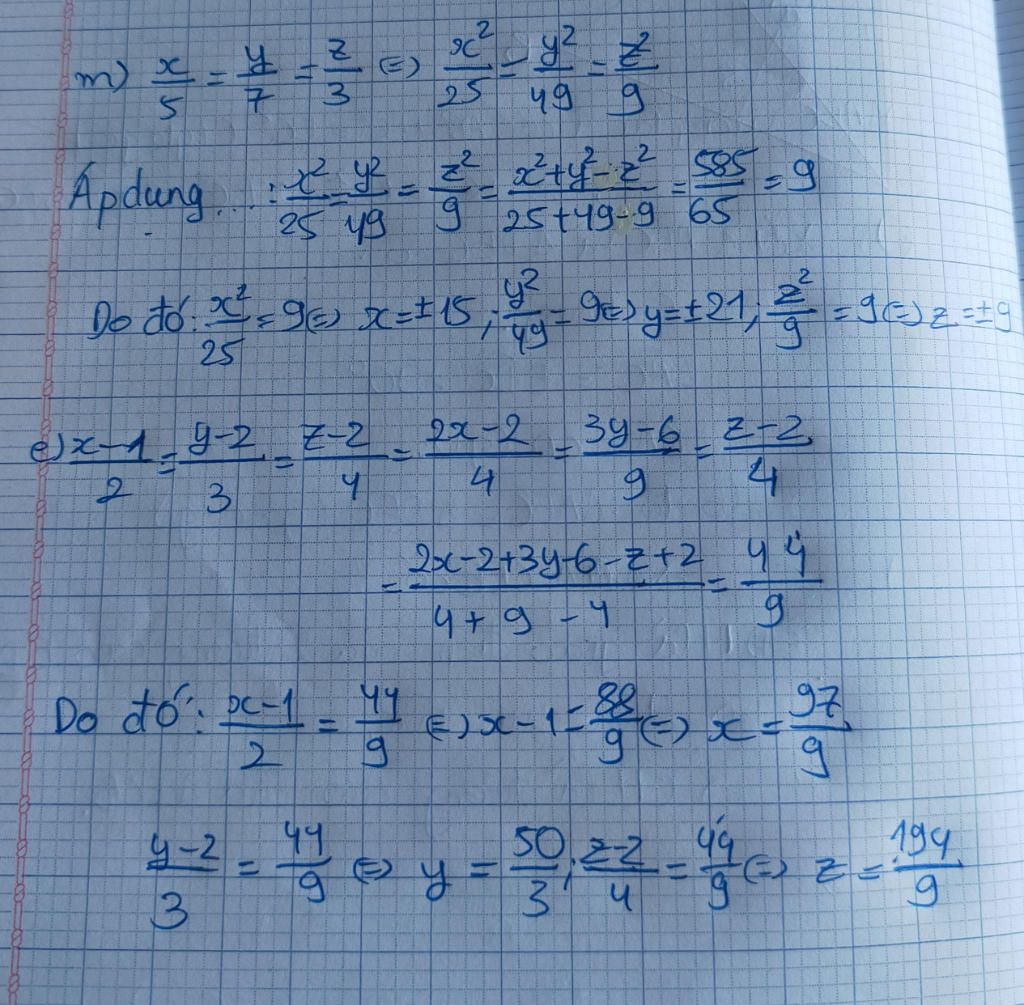 m) x/5 = y/7 = z/3 (=) x²/25 = y²/49 = z²/9
Áp dụng...: x²/25 = y²/49 = z²/9 = x²+y²-z²/25+49-9 = 585/65 = 9
Do đó: x²/25 = 9 (=) x = ±15; y²/49 = 9 (=) y = ±21; z²/9 = 9 (=) z = ±9
e) x-1/2 = y-2/3 = z-2/4 = 2x-2/4 = 3y-6/9 = z-2/4
= 2x-2+3y-6-z+2/4+9-4 = 44/9
Do đó: x-1/2 = 44/9 (=) x-1 = 88/9 (=) x = 97/9
y-2/3 = 44/9 (=) y = 50/3; z-2/4 = 44/9 (=) z = 194/9